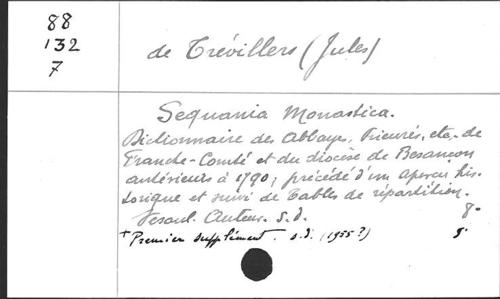 88
132
7
de Trévillers (Jules)
Sequania Monastica.
Dictionnaire des Abbayes, Prieurés, etc. de
Franche-Comté et du diocèse de Besançon
antérieurs à 1790; précédé d'un aperçu his-
torique et suivi de tables de répartition.
Vesoul. Auteur. S.d. 8.
+ Premier supplément. s.d. (1955?) 8.